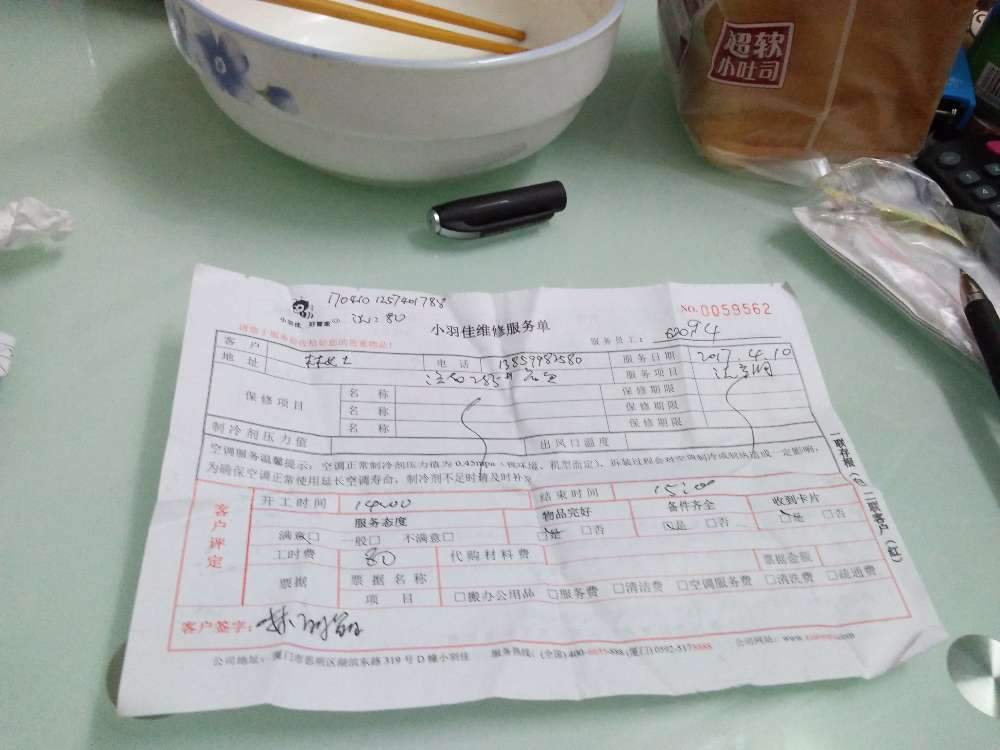 超软
小吐司
1704101257401788
沈:80
NO.0059562
小羽佳 好管家
小羽佳维修服务单
服务员工: 62094
客户 林女士 电话 13859982580 服务日期 2017.4.10
地址 服务项目
保修项目 名称 保修期限
名称 保修期限
名称 保修期限
制冷剂压力值 出风口温度
空调服务温馨提示:空调正常制冷剂压力值为0.45mpa(视环境、机型而定),拆装过程会对空调制冷或制热造成一定影响,
为确保空调正常使用延长空调寿命,制冷剂不足时请及时补
客户评定
开工时间 14:00 结束时间 15:20
服务态度 物品完好 备件齐全 收到卡片
满意□ 一般□ 不满意□ □是 □否 □是 □否 □是 □否
工时费 80 代购材料费 票据金额
票据 票据名称
项目 □搬办公用品 □服务费 □清洁费 □空调服务费 □清洗费 □疏通费
客户签字:
公司地址:厦门市思明区湖滨东路319号D幢小羽佳 服务热线:(全国)400-6655-888 (厦门)0592-5178888 公司网站:
一联存根(白)二联客户(红)